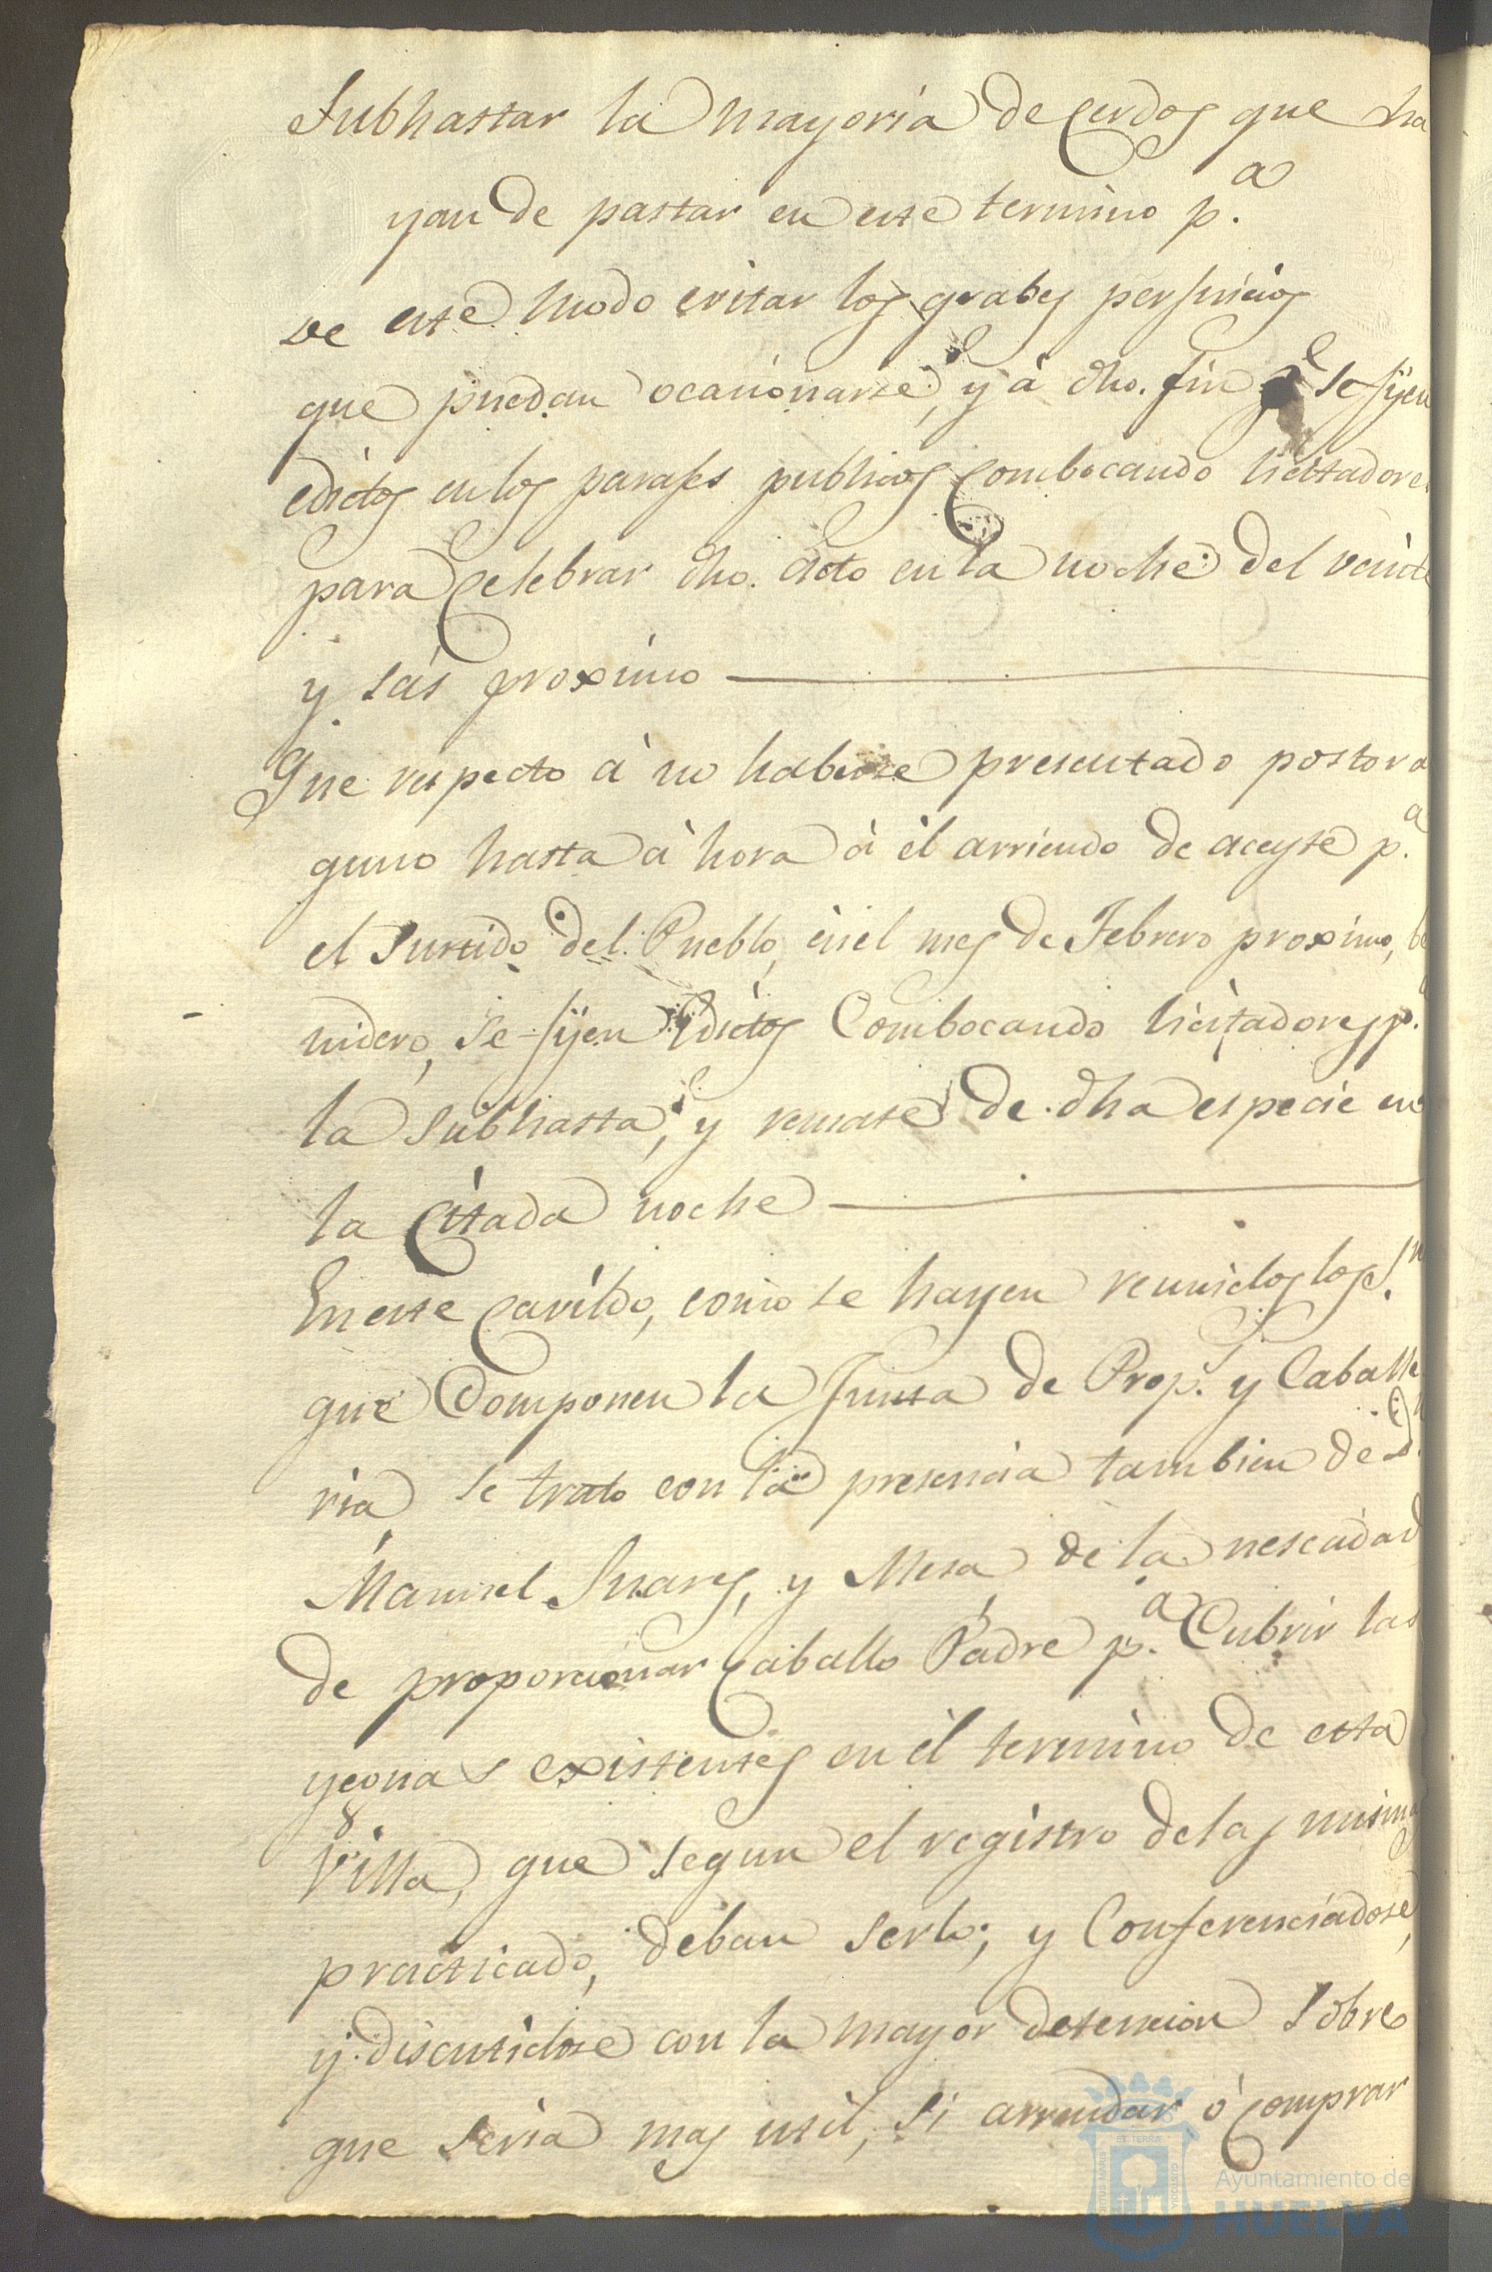 Subhastar la mayoria de Cerdos que ha
yan de pastar en este termino p.a
de este modo evitar los grabes perjuicios
que puedan ocacionarse, y à dho. fin qe se fijen
edictos en los parajes publicos Combocando licitadore
para Celebrar dho. acto en la noche del veinte
y seis proximo
Que respecto à no haberse presentado postor a
guno hasta à hora à èl arriendo de aceyte p.a
el Surtido del Pueblo, en el mes de Febrero proximo, be
nidero, se fijen Edictos Combocando licitadores p.a
la subhasta, y remate de dha especie en
la Citada noche
En este Cavildo, como se hayen reunidos los S.res
que Componen la Junta de Prop.s y Caballe
ria se trato con la presencia tambien de D.n
Manuel Suares, y Mesa de la nesecidad
de proporcionar Caballo Padre p.a Cubrir las
yeguas existentes en èl termino de esta
Villa, que segun el registro de las misma
practicado, deban serlo; y Conferenciadose,
y discutidose con la mayor detencion sobre
que seria mas util, si arrendar ò Comprar
Ayuntamiento de
HUELVA